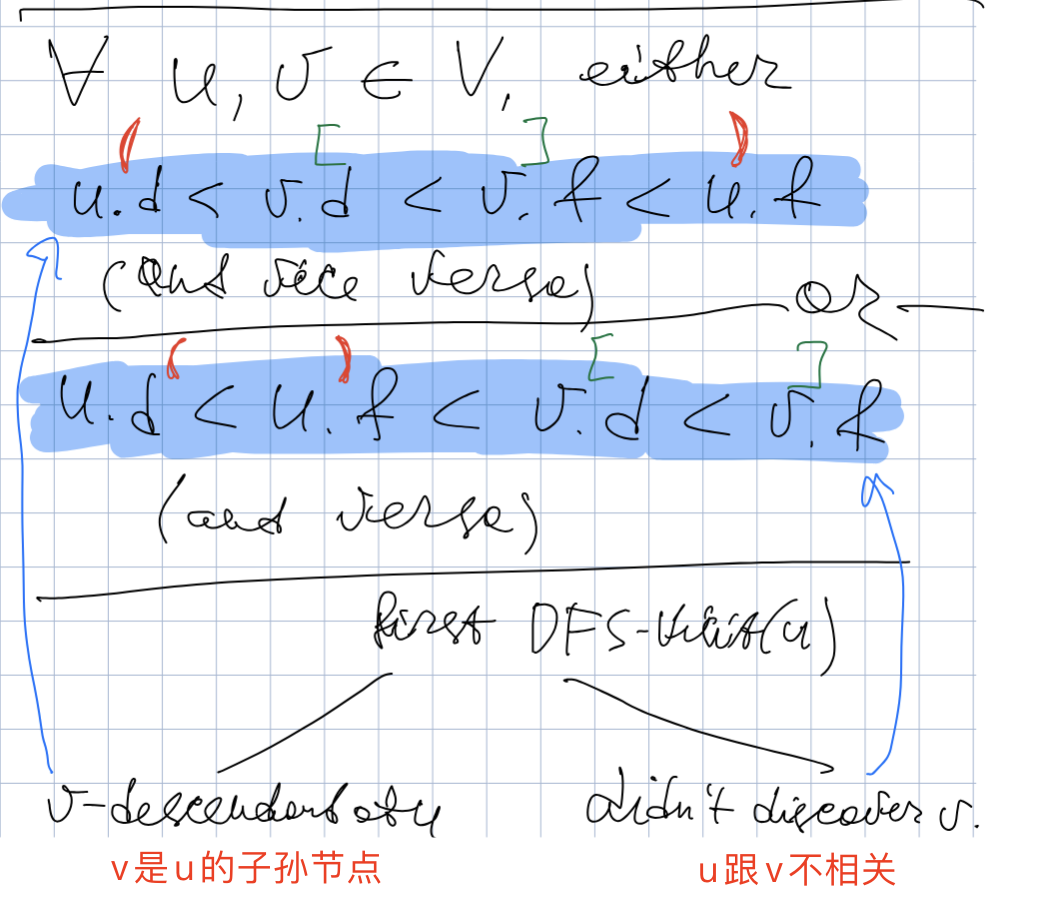 ∀ u, v ∈ V, either
( [ ] )
u.d < v.d < v.f < u.f
(and vice versa)
or
( ) [ ]
u.d < u.f < v.d < v.f
(and versa)
first DFS-Visit(u)
v-descendant of u
didn't discover v.
v是u的子孙节点
u跟v不相关